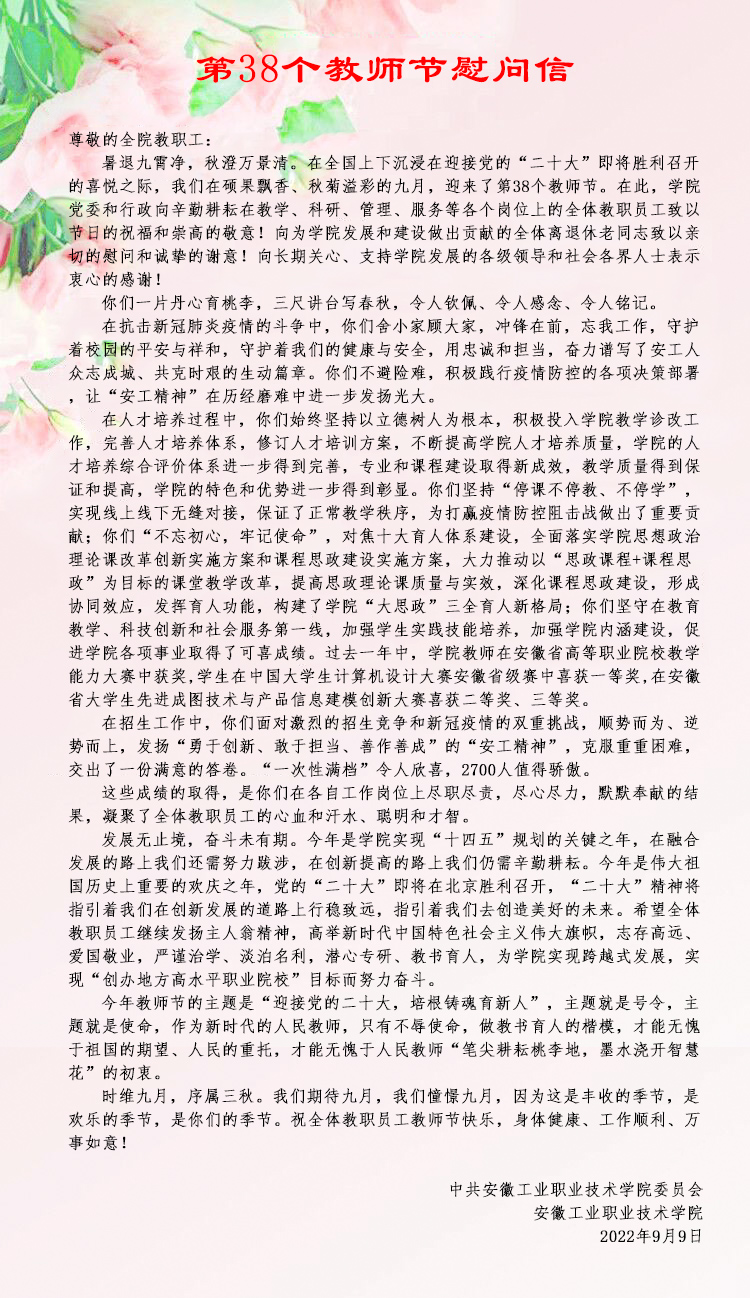 第38个教师节慰问信
尊敬的全院教职工：
暑退九霄净，秋澄万景清。在全国上下沉浸在迎接党的“二十大”即将胜利召开
的喜悦之际，我们在硕果飘香、秋菊溢彩的九月，迎来了第38个教师节。在此，学院
党委和行政向辛勤耕耘在教学、科研、管理、服务等各个岗位上的全体教职员工致以
节日的祝福和崇高的敬意！向为学院发展和建设做出贡献的全体离退休老同志致以亲
切的慰问和诚挚的谢意！向长期关心、支持学院发展的各级领导和社会各界人士表示
衷心的感谢！
你们一片丹心育桃李，三尺讲台写春秋，令人钦佩、令人感念、令人铭记。
在抗击新冠肺炎疫情的斗争中，你们舍小家顾大家，冲锋在前，忘我工作，守护
着校园的平安与祥和，守护着我们的健康与安全，用忠诚和担当，奋力谱写了安工人
众志成城、共克时艰的生动篇章。你们不避险难，积极践行疫情防控的各项决策部署
，让“安工精神”在历经磨难中进一步发扬光大。
在人才培养过程中，你们始终坚持以立德树人为根本，积极投入学院教学诊改工
作，完善人才培养体系，修订人才培训方案，不断提高学院人才培养质量，学院的人
才培养综合评价体系进一步得到完善，专业和课程建设取得新成效，教学质量得到保
证和提高，学院的特色和优势进一步得到彰显。你们坚持“停课不停教、不停学”，
实现线上线下无缝对接，保证了正常教学秩序，为打赢疫情防控阻击战做出了重要贡
献；你们“不忘初心，牢记使命”，对焦十大育人体系建设，全面落实学院思想政治
理论课改革创新实施方案和课程思政建设实施方案，大力推动以“思政课程+课程思
政”为目标的课堂教学改革，提高思政理论课质量与实效，深化课程思政建设，形成
协同效应，发挥育人功能，构建了学院“大思政”三全育人新格局；你们坚守在教育
教学、科技创新和社会服务第一线，加强学生实践技能培养，加强学院内涵建设，促
进学院各项事业取得了可喜成绩。过去一年中，学院教师在安徽省高等职业院校教学
能力大赛中获奖,学生在中国大学生计算机设计大赛安徽省级赛中喜获一等奖,在安徽
省大学生先进成图技术与产品信息建模创新大赛喜获二等奖、三等奖。
在招生工作中，你们面对激烈的招生竞争和新冠疫情的双重挑战，顺势而为、逆
势而上，发扬“勇于创新、敢于担当、善作善成”的“安工精神”，克服重重困难，
交出了一份满意的答卷。“一次性满档”令人欣喜，2700人值得骄傲。
这些成绩的取得，是你们在各自工作岗位上尽职尽责，尽心尽力，默默奉献的结
果，凝聚了全体教职员工的心血和汗水、聪明和才智。
发展无止境，奋斗未有期。今年是学院实现“十四五”规划的关键之年，在融合
发展的路上我们还需努力跋涉，在创新提高的路上我们仍需辛勤耕耘。今年是伟大祖
国历史上重要的欢庆之年，党的“二十大”即将在北京胜利召开，“二十大”精神将
指引着我们在创新发展的道路上行稳致远，指引着我们去创造美好的未来。希望全体
教职员工继续发扬主人翁精神，高举新时代中国特色社会主义伟大旗帜，志存高远、
爱国敬业，严谨治学、淡泊名利，潜心专研、教书育人，为学院实现跨越式发展，实
现“创办地方高水平职业院校”目标而努力奋斗。
今年教师节的主题是“迎接党的二十大，培根铸魂育新人”，主题就是号令，主
题就是使命，作为新时代的人民教师，只有不辱使命，做教书育人的楷模，才能无愧
于祖国的期望、人民的重托，才能无愧于人民教师“笔尖耕耘桃李地，墨水浇开智慧
花”的初衷。
时维九月，序属三秋。我们期待九月，我们憧憬九月，因为这是丰收的季节，是
欢乐的季节，是你们的季节。祝全体教职员工教师节快乐，身体健康、工作顺利、万
事如意！
中共安徽工业职业技术学院委员会
安徽工业职业技术学院
2022年9月9日